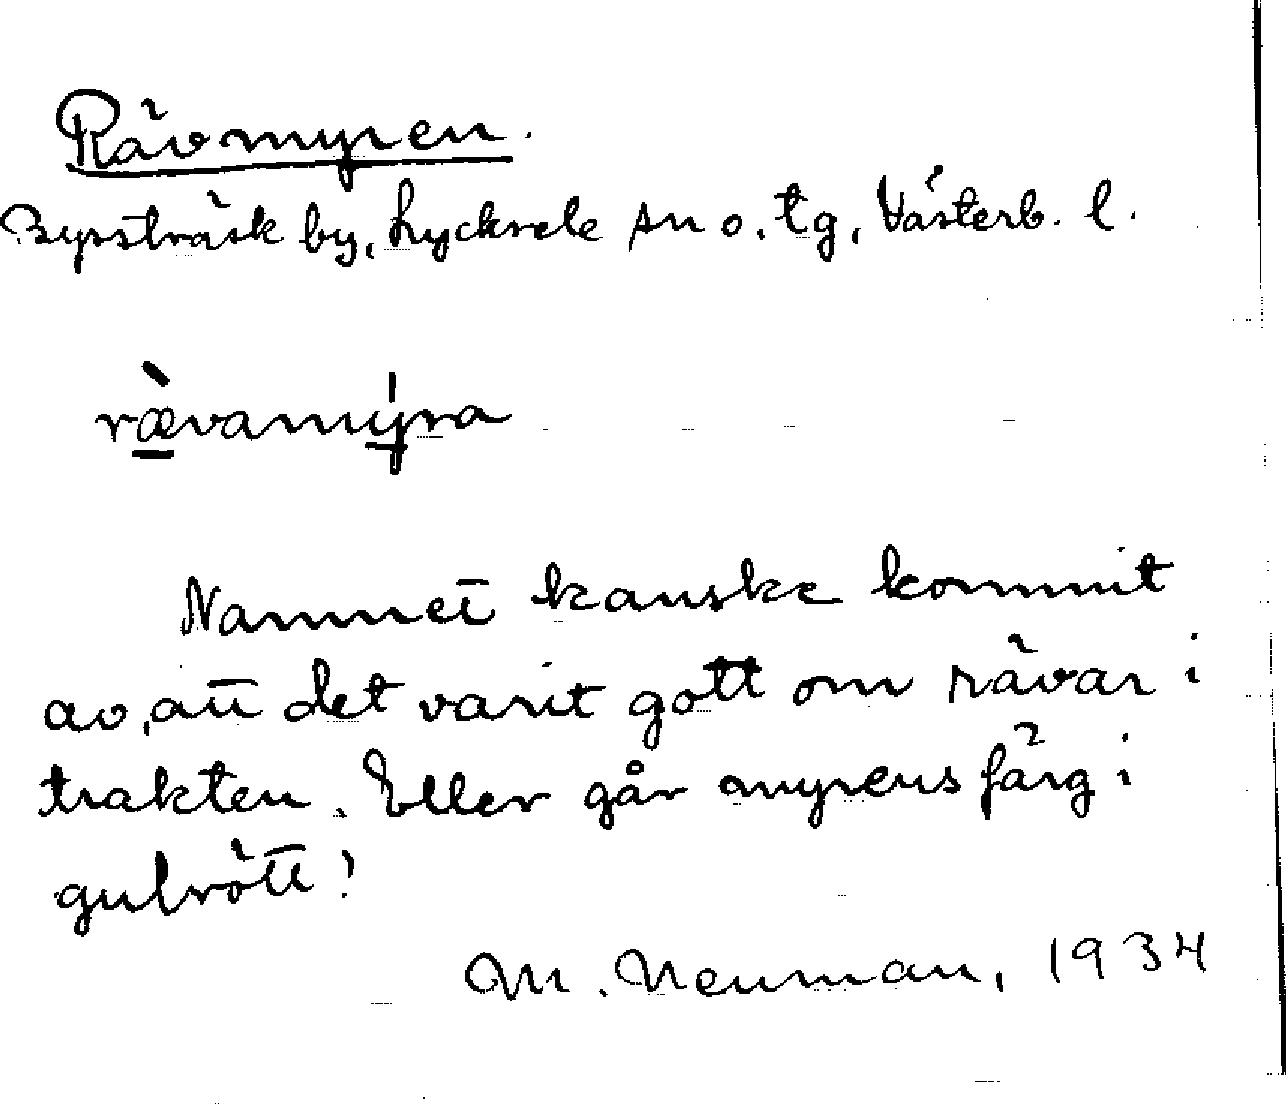 Rävmyren.
Byssträsk by, Lycksele sn o. tg, Västerb. l.
rævamyra
Namnet kanske kommit
av, att det varit gott om rävar i
trakten. Eller går myrens färg i
gulrött!
M. Neuman, 1934